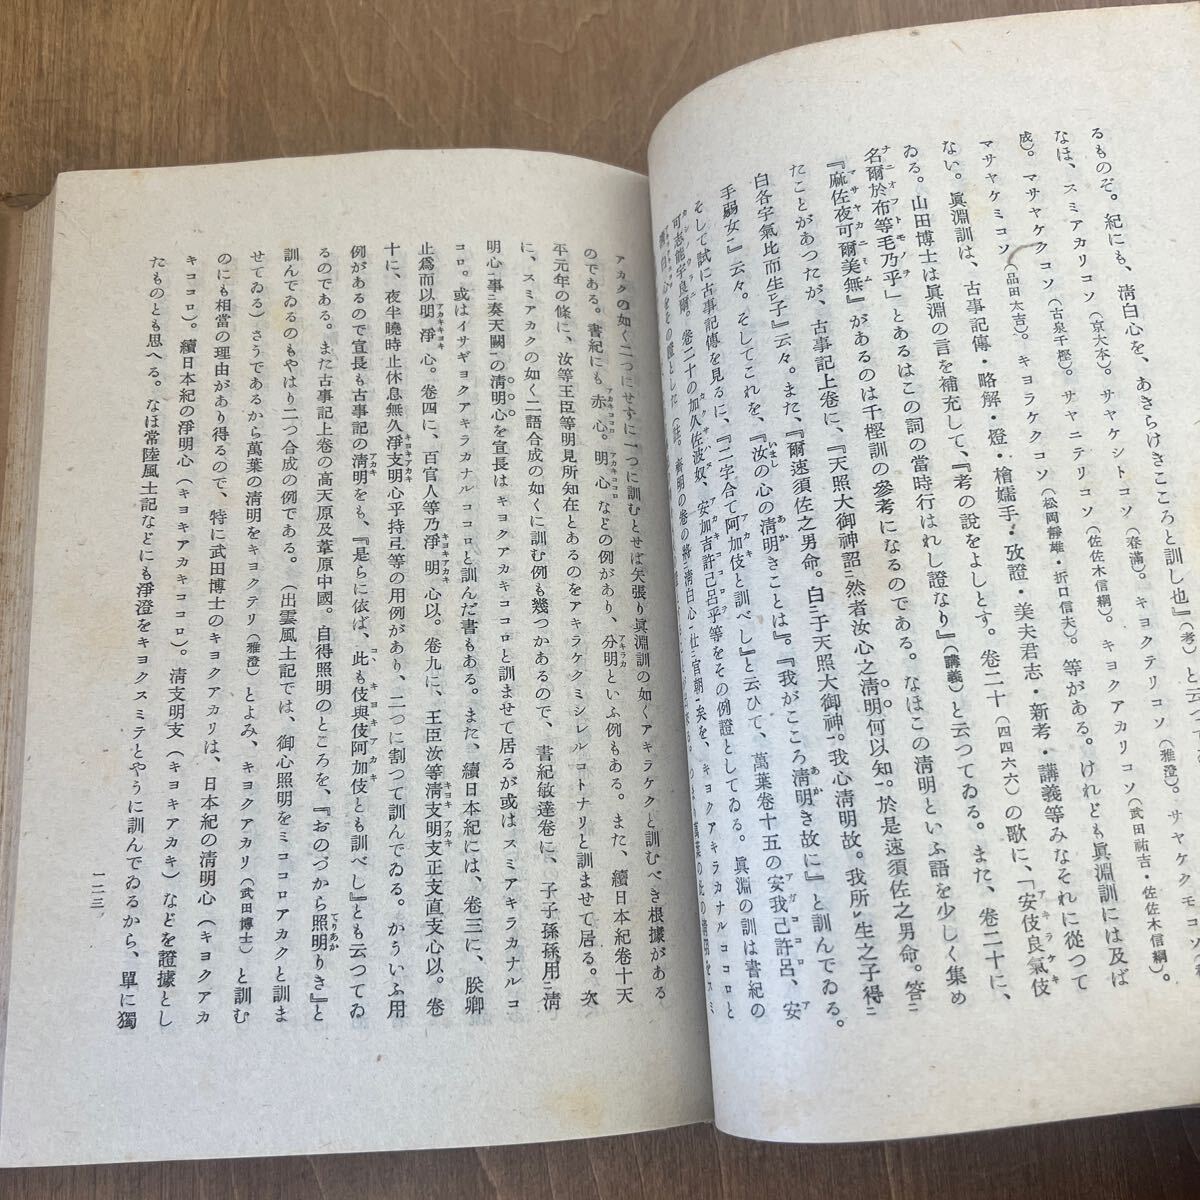 るものぞ。紀にも、淸白心を、あきらけきこころと訓し也』(考)と云つ
なほ、スミアカリコソ(京大本)。サヤケシトコソ(春滿)。キヨクテリコソ(雅澄)。サヤケクモコソ
成)。マサヤケクコソ(古泉千樫)。サヤニテリコソ(佐佐木信綱)。キヨクアカリコソ(武田祐吉・佐佐木信綱)。
マサヤケミコソ(品田太吉)。キヨラケクコソ(松岡靜雄・折口信夫)。等がある。けれども眞淵訓には及ば
ない。眞淵訓は、古事記傳・略解・燈・檜嬬手・攷證・美夫君志・新考・講義等みなそれに從つて
ゐる。山田博士は眞淵の言を補充して、『考の說をよしとす。卷二十(四四六六)の歌に、「安伎良氣伎
名爾於布等毛乃乎」とあるはこの詞の當時行はれし證なり』(講義)と云つてゐる。また、卷二十に、
『麻佐夜可爾美無』があるのは千樫訓の參考になるのである。なほこの淸明といふ語を少しく集め
たことがあつたが、古事記上卷に、『天照大御神詔ニ然者汝心之淸明何以知。於是速須佐之男命。答ニ
白各宇氣比而生レ子』云々。また、『爾速須佐之男命。白ニ于天照大御神一我心淸明故。我所レ生之子得ニ
手弱女一』云々。そしてこれを、『汝の心の淸明きことは』。『我がこころ淸明き故に』と訓んでゐる。
そして試に古事記傳を見るに、『二字合て阿加伎と訓べし』と云ひて、萬葉卷十五の安我己許呂、安
可志能宇良爾。卷二十の加久佐波奴、安加吉許己呂乎等をその例證としてゐる。眞淵の訓は書紀の
アカクの如く二つにせずに一つに訓むとせば矢張り眞淵訓の如くアキラケクと訓むべき根據がある
のである。書紀にも赤心。明心などの例があり、分明といふ例もある。また、續日本紀卷十天
平元年の條に、汝等王臣等明見所知在とあるのをアキラケクミシレルコトナリと訓ませて居る。次
に、スミアカクの如く二語合成の如くに訓む例も幾つかあるので、書紀敏達卷に、子子孫孫用ニ淸
明心一事ニ奏天闕一の淸明心を宣長はキヨクアカキココロと訓ませて居るが或はスミアキラカナルコ
コロ。或はイサギヨクアキラカナルココロと訓んだ書もある。また、續日本紀には、卷三に、朕卿
止爲而以明淨心。卷四に、百官人等乃淨明心以。卷九に、王臣汝等淸支明支正支直支心以。卷
十に、夜半曉時止休息無久淨支明心乎持弖等の用例があり、二つに割つて訓んでゐる。かういふ用
例があるので宣長も古事記の淸明をも、『是らに依ば、此も伎與伎阿加伎とも訓べし』とも云つてゐ
るのである。また古事記上卷の高天原及葦原中國。自得照明のところを、『おのづから照明りき』と
訓んでゐるのもやはり二つ合成の例である。(出雲風土記では、御心照明をミココロアカクと訓ま
せてゐる)さうであるから萬葉の淸明をキヨクテリ(雅澄)とよみ、キヨクアカリ(武田博士)と訓む
のにも相當の理由があり得るので、特に武田博士のキヨクアカリは、日本紀の淸明心(キヨクアカ
キココロ)。續日本紀の淨明心(キヨキアカキココロ)。淸支明支(キヨキアカキ)などを證據とし
たものとも思へる。なほ常陸風土記などにも淨澄をキヨクスミテとやうに訓んでゐるから、單に獨
一二三